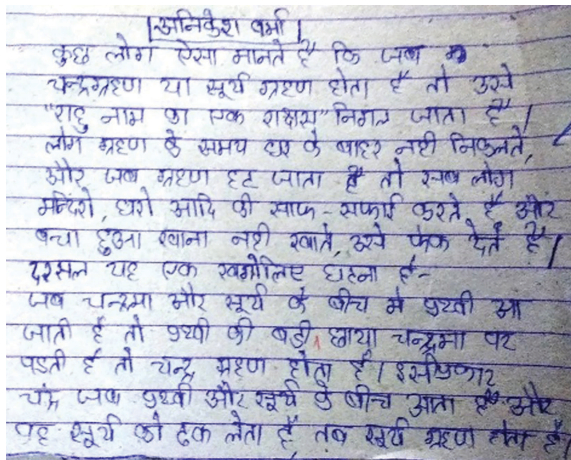 अनिकेश वर्मा
कुछ लोग ऐसा मानते है कि जब
चन्द्रग्रहण या सूर्य ग्रहण होता है तो उसे
"राहु नाम का एक राक्षस" निगल जाता है।
लोग ग्रहण के समय घर के बाहर नही निकलते,
और जब ग्रहण हट जाता है तो सब लोग
मन्दिरो, घरो आदि की साफ-सफाई करते है और
बचा हुआ खाना नही खाते, उसे फेक देते है।
दरसल यह एक खगोलिए घटना है-
जब चन्द्रमा और सूर्य के बीच मे पृथ्वी आ
जाती है तो पृथ्वी की बडी छाया चन्द्रमा पर
पडती है तो चन्द्र ग्रहण होता है। इसीप्रकार
चंद्र जब पृथ्वी और सूर्य के बीच आता है और
वह सूर्य को ढक लेता है, तब सूर्य ग्रहण होता है।